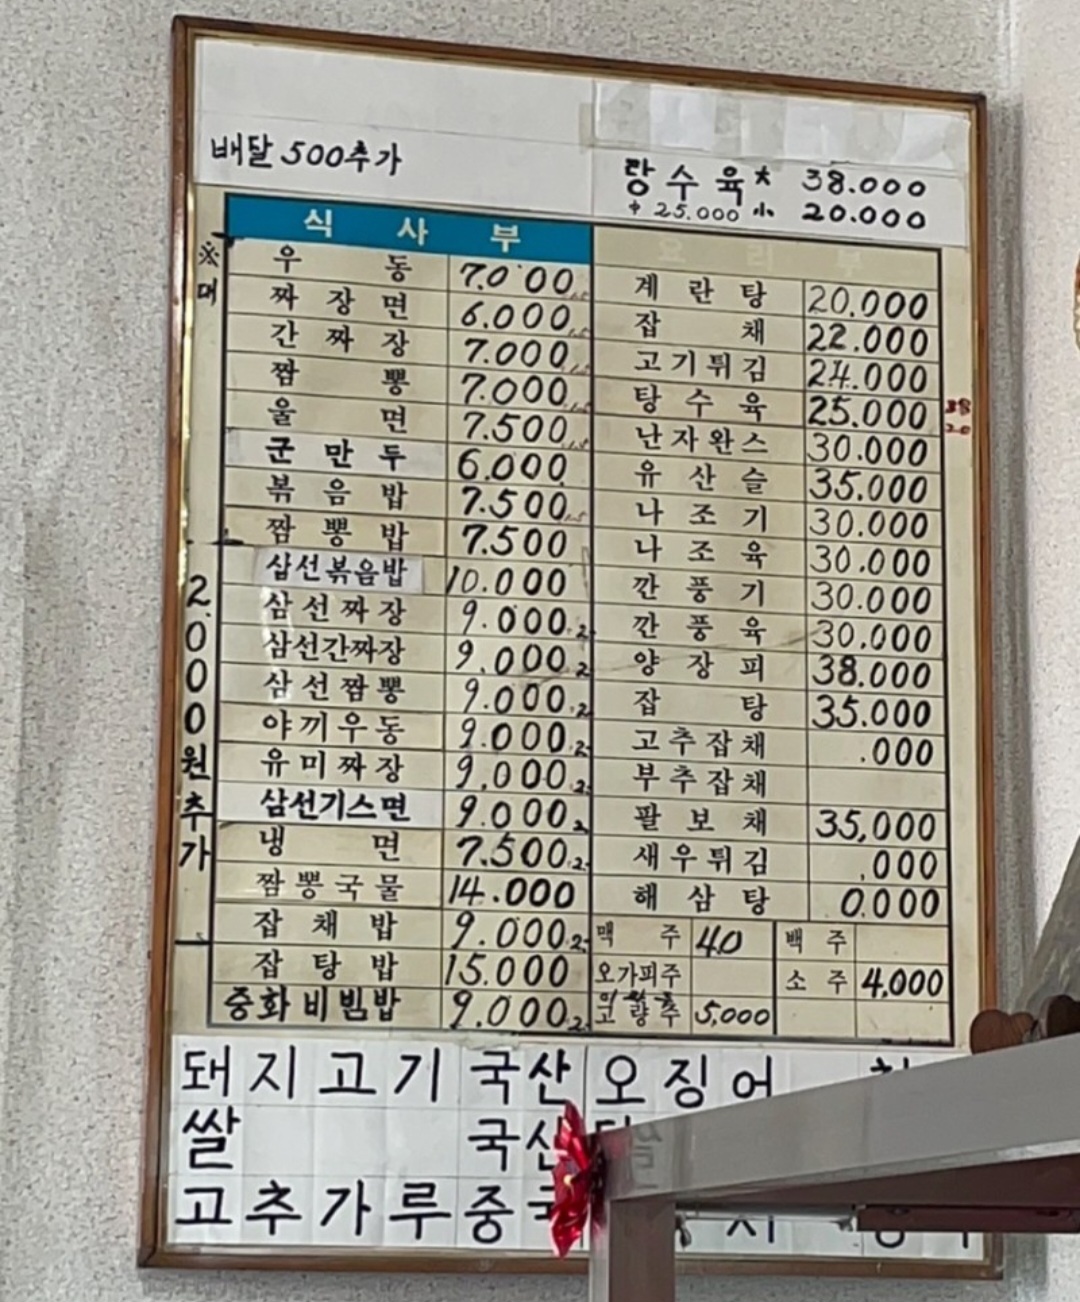 배달 500추가
탕수육 大 38.000
中 25.000 小 20.000
식사부
우동 7.000
짜장면 6.000
간짜장 7.000
짬뽕 7.000
울면 7.500
군만두 6.000
볶음밥 7.500
짬뽕밥 7.500
삼선볶음밥 10.000
삼선짜장 9.000
삼선간짜장 9.000
삼선짬뽕 9.000
야끼우동 9.000
유미짜장 9.000
삼선기스면 9.000
냉면 7.500
짬뽕국물 14.000
잡채밥 9.000
잡탕밥 15.000
중화비빔밥 9.000
2.000원추가
요리부
계란탕 20.000
잡채 22.000
고기튀김 24.000
탕수육 25.000
난자완스 30.000
유산슬 35.000
나조기 30.000
나조육 30.000
깐풍기 30.000
깐풍육 30.000
양장피 38.000
잡탕 35.000
고추잡채 .000
부추잡채
팔보채 35,000
새우튀김 ,000
해삼탕 0.000
맥주 4.0 백주
오가피주 소주 4,000
고량주 5,000
돼지고기 국산 오징어
쌀 국산
고추가루